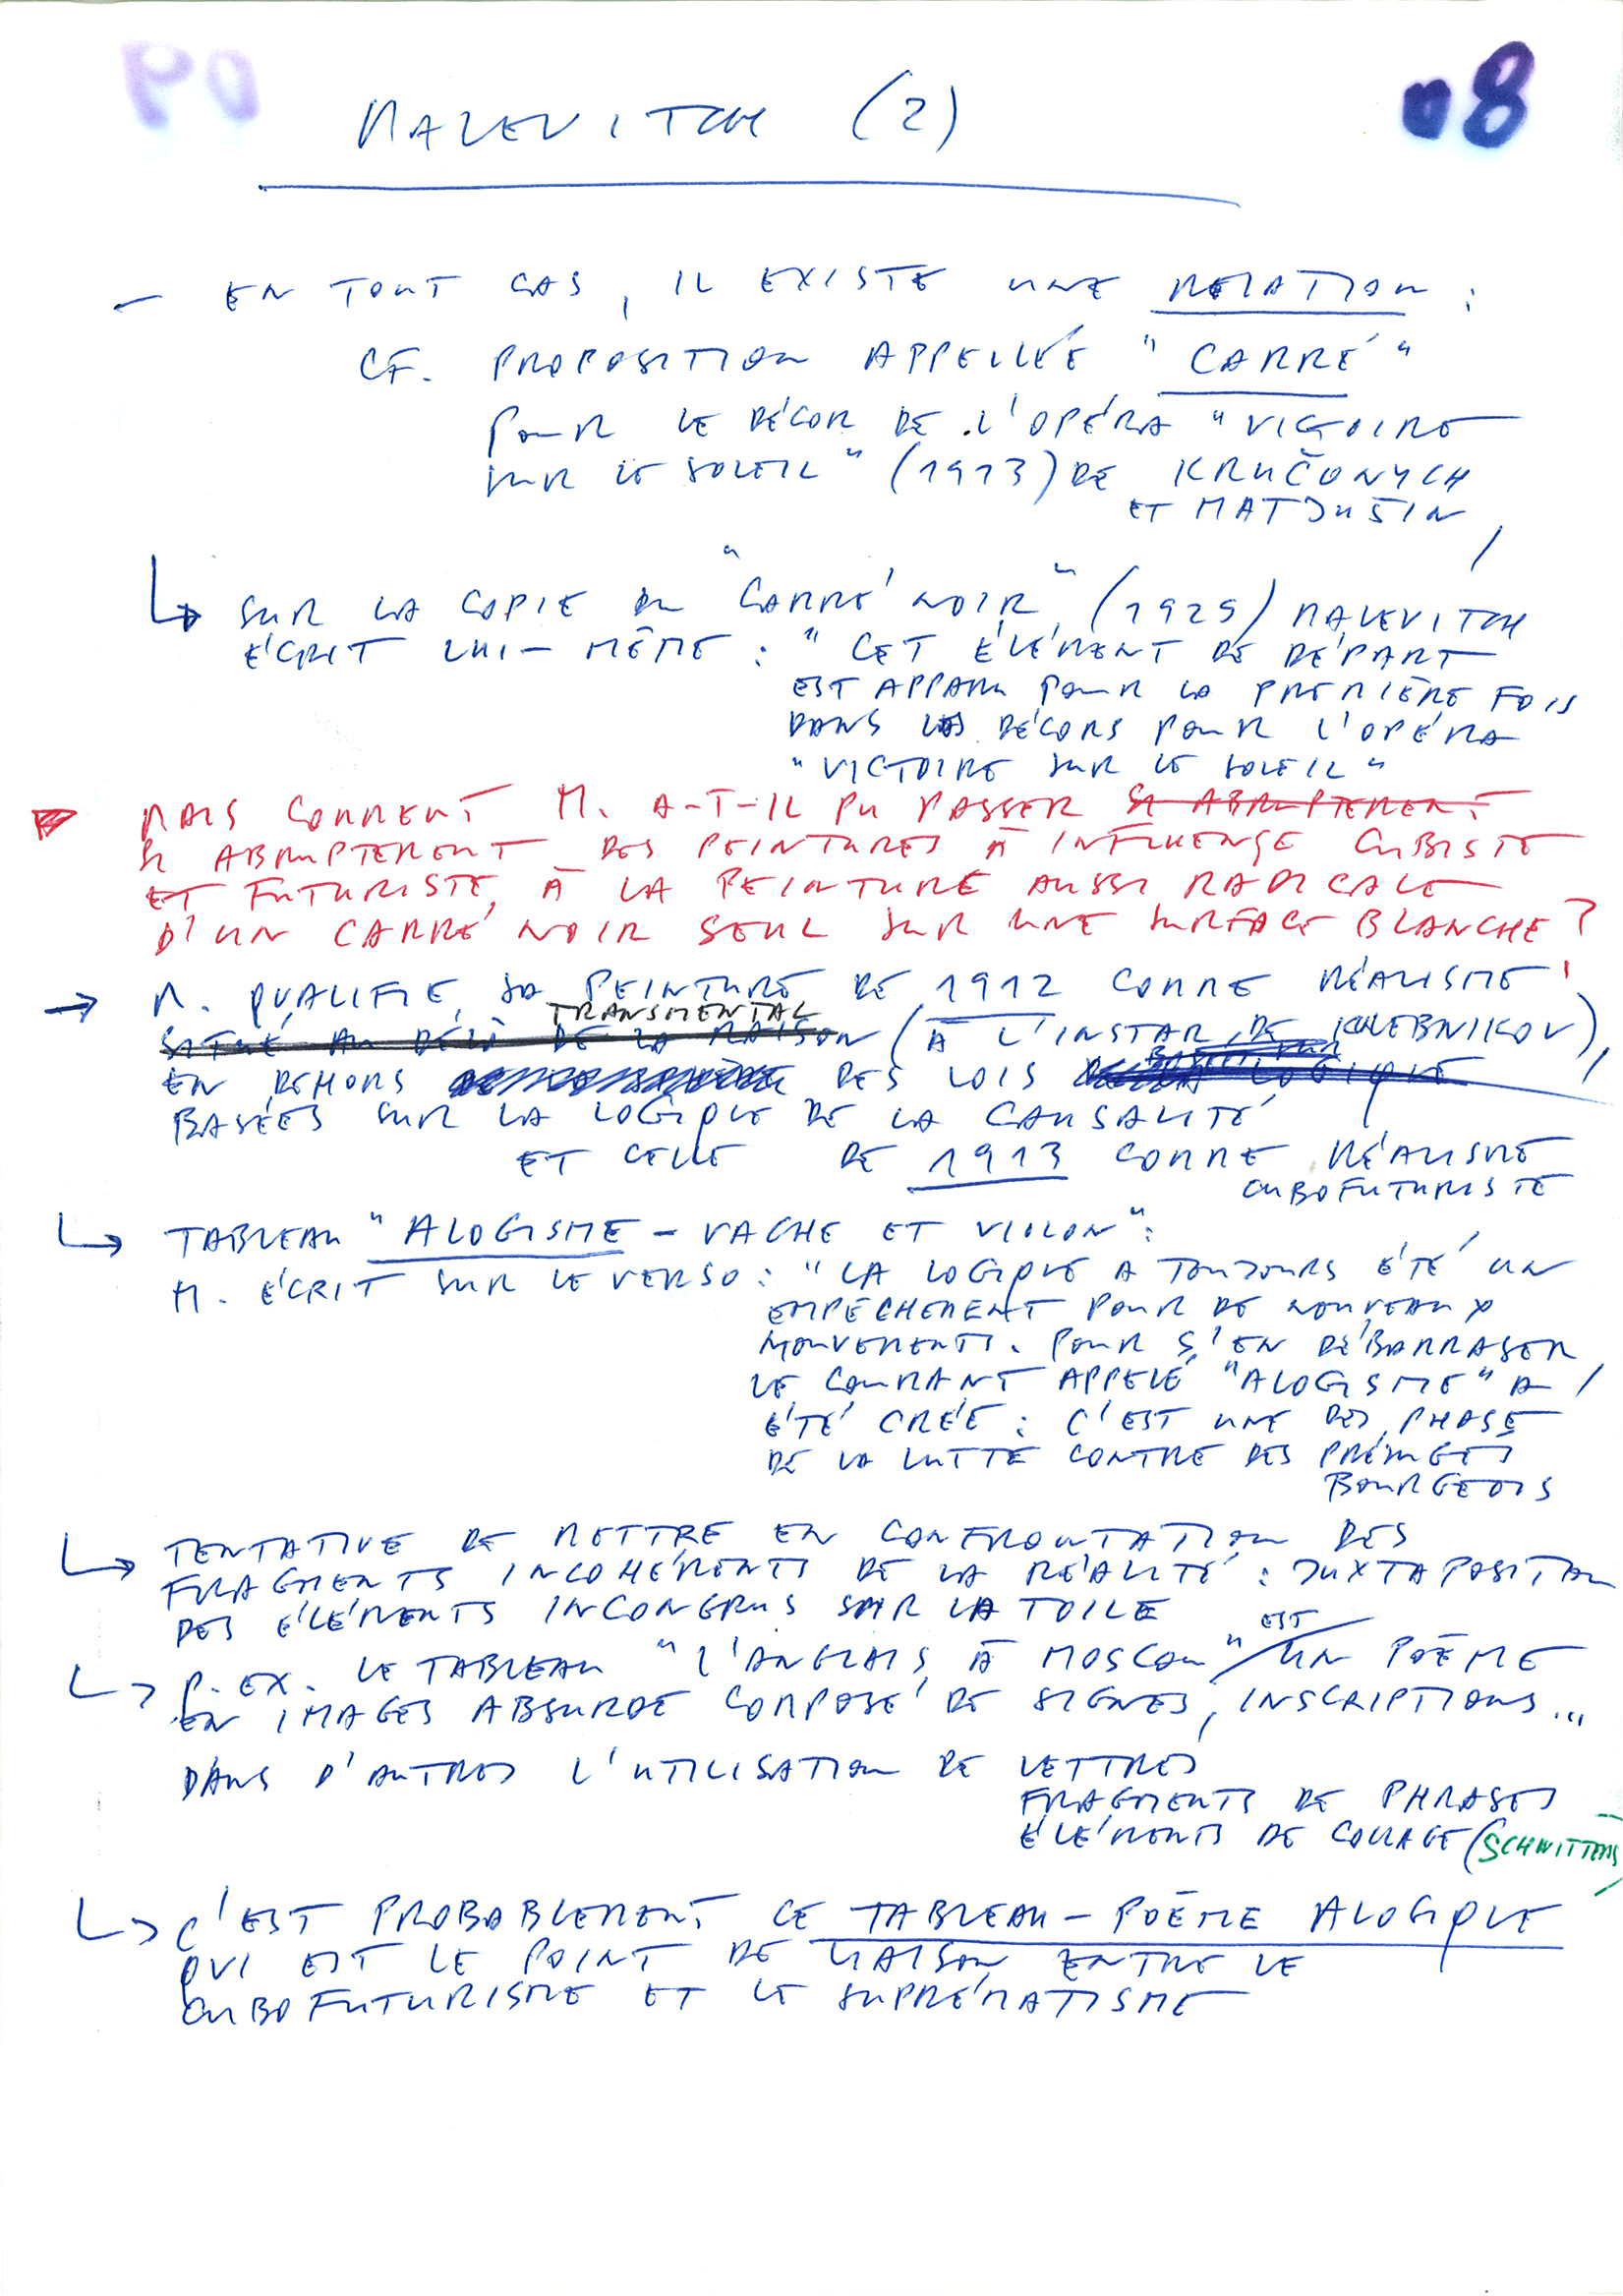 08
MALEVITCH (2)
– EN TOUT CAS, IL EXISTE UNE RELATION :
CF. PROPOSITION APPELLÉE "CARRÉ"
POUR LE DÉCOR DE L'OPÉRA "VICTOIRE
SUR LE SOLEIL" (1913) DE KRUČONYCH
ET MATJUŠIN,
↳ SUR LA COPIE DU "CARRÉ NOIR" (1929) MALEVITCH
ÉCRIT LUI-MÊME : "CET ÉLÉMENT DE DÉPART
EST APPARU POUR LA PREMIÈRE FOIS
DANS LES DÉCORS POUR L'OPÉRA
"VICTOIRE SUR LE SOLEIL"
MAIS COMMENT M. A-T-IL PU PASSER SI ABRUPTEMENT
SI ABRUPTEMENT DES PEINTURES À INFLUENCE CUBISTE
ET FUTURISTE, À LA PEINTURE AUSSI RADICALE
D'UN CARRÉ NOIR SEUL SUR UNE SURFACE BLANCHE ?
→ M. QUALIFIE SA PEINTURE DE 1912 COMME RÉALISME
TRANSMENTAL
SITUÉ AU DELÀ DE LA RAISON (À L'INSTAR DE KHLEBNIKOV),
EN DEHORS DES LOIS
BASÉES SUR LA LOGIQUE DE LA CAUSALITÉ
ET CELLE DE 1913 COMME RÉALISME
CUBOFUTURISTE
↳ TABLEAU "ALOGISME – VACHE ET VIOLON" :
M. ÉCRIT SUR LE VERSO : "LA LOGIQUE A TOUJOURS ÉTÉ UN
EMPÊCHEMENT POUR DE NOUVEAUX
MOUVEMENTS. POUR S'EN DÉBARRASER
LE COURANT APPELÉ "ALOGISME" A
ÉTÉ CRÉE : C'EST UNE DES PHASE
DE LA LUTTE CONTRE DES PRÉJUGÉS
BOURGEOIS
↳ TENTATIVE DE METTRE EN CONFRONTATION DES
FRAGMENTS INCOHÉRENTS DE LA RÉALITÉ : JUXTAPOSITION
DES ÉLÉMENTS INCONGRUS SUR LA TOILE
↳ P. EX. LE TABLEAU "L'ANGLAIS À MOSCOU" EST UN POÈME
EN IMAGES ABSURDE COMPOSÉ DE SIGNES, INSCRIPTIONS...
DANS D'AUTRES L'UTILISATION DE LETTRES
FRAGMENTS DE PHRASES
ÉLÉMENTS DE COLLAGE (SCHWITTERS)
↳ C'EST PROBABLEMENT CE TABLEAU-POÈME ALOGIQUE
QUI EST LE POINT DE LIAISON ENTRE LE
CUBOFUTURISME ET LE SUPRÉMATISME